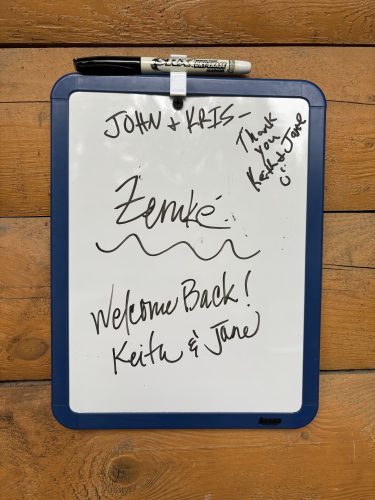 JOHN & KRIS –
Thank
you
Keith & Jane
Zemké
Welcome Back!
Keith & Jane